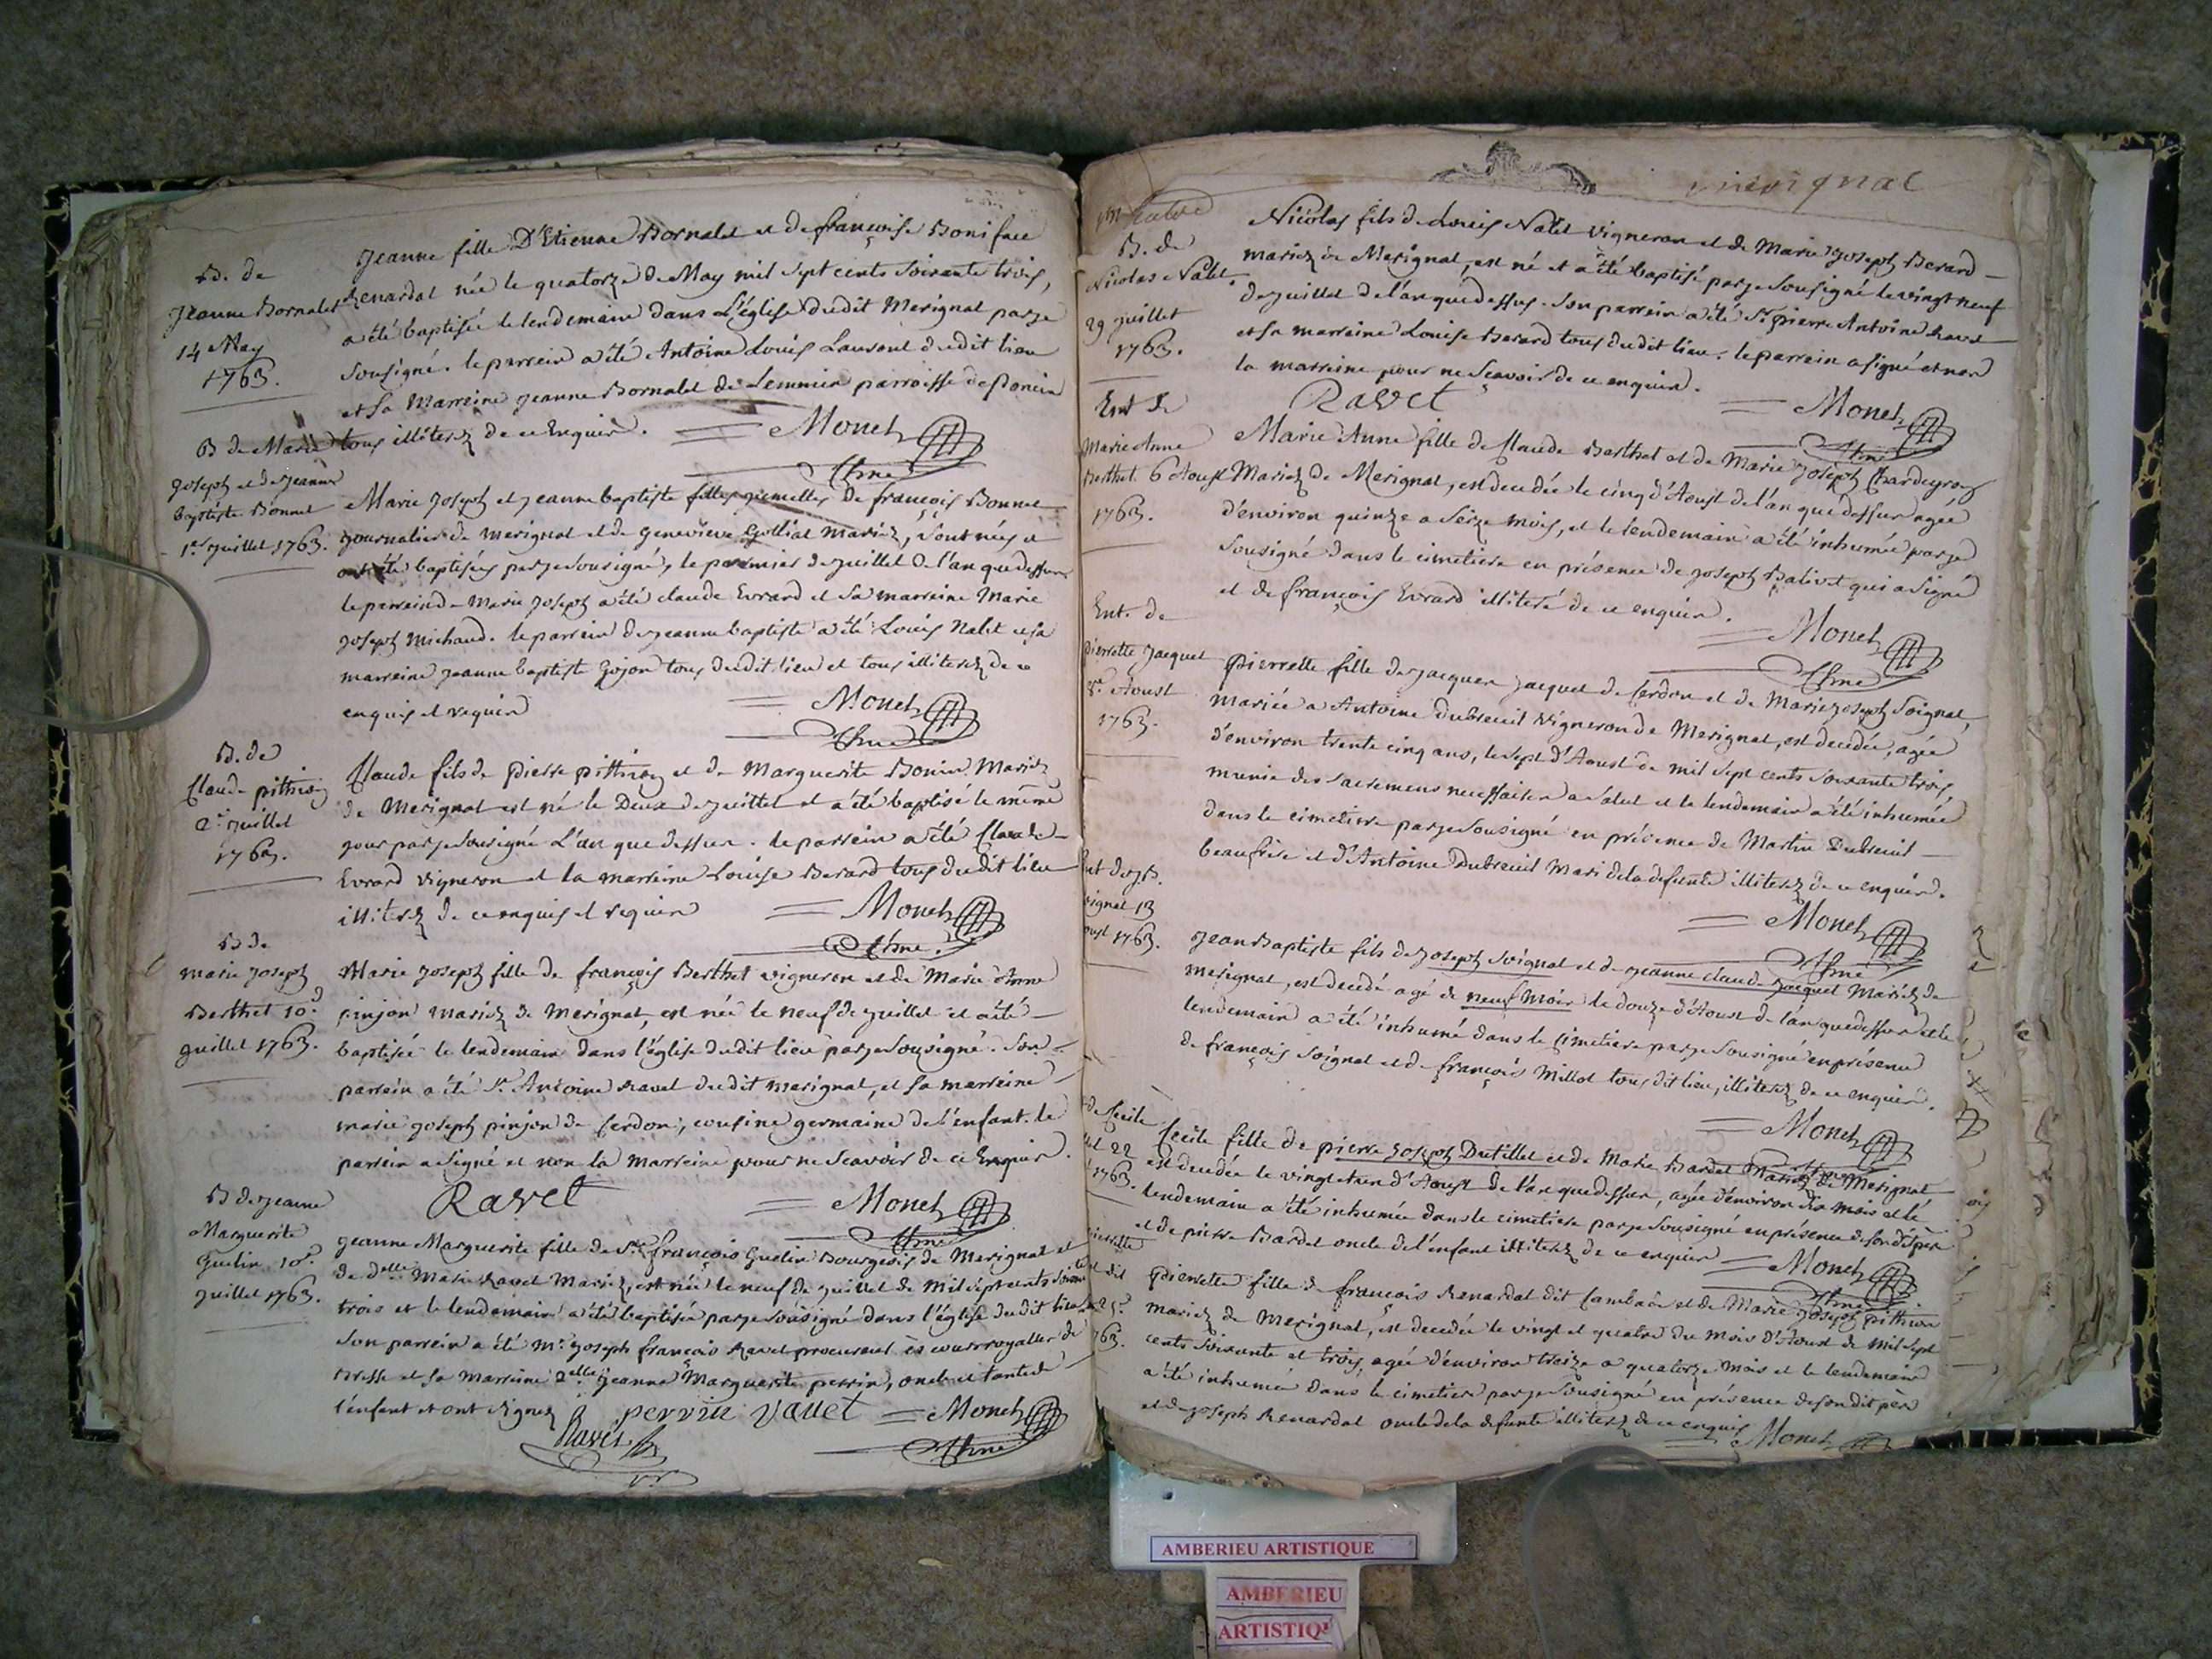 B. de
Jeanne Bornalet
14 May
1763.
Jeanne fille D'Etienne Bornalet et de françoise Boniface
Renardat née le quatorze de May mil sept cents soixante trois,
a été baptisée le lendemain dans L'église dudit Merignat par je
sousigné. le parrein a été Antoine Louis dudit lieu
et sa Marreine Jeanne Bornalet de parroisse de Poncin
tous illiterez de ce Enquis.
Monet
Cure
B de Marie
Joseph et de Jeanne
baptiste Bonnet
1er juillet 1763.
Marie Joseph et Jeanne baptiste filles jumelles de françois Bonnet
journalier de merignat et de genevieve Golliat mariez, sont nés et
ont été baptisées par je sousigné, le premier de juillet de l'an que dessus
le parrein de Marie Joseph a été claude Evrard et sa marreine Marie
Joseph michaud. le parrein de jeanne baptiste a été Louis Nalet et sa
marreine jeanne baptiste Gojon tous dudit lieu et tous illiterez de ce
enquis et requis
Monet
Cure
B. de
Claude pithiou
2e juillet
1763.
Claude fils de pierre pithiou et de Marguerite Bonin Mariez
de Merignat est né le Deux de juillet et a été baptisé le même
jour par je sousigné L'an que dessus. le parrein a été Claude
Evrard vigneron et la marreine Louise Berard tous dudit lieu
illiterez de ce enquis et requis
Monet
Cure
B de
marie Joseph
Berthet 10e
juillet 1763.
Marie Joseph fille de françois Berthet vigneron et de Marie Anne
pinjon mariez de Merignat, est née le neuf de juillet et a été
baptisée le lendemain dans l'église dudit lieu par je sousigné. Son
parrein a été Sr Antoine Ravet dudit merignat, et sa marreine
marie joseph pinjon de Cerdon, cousine germaine de l'enfant. le
parrein a signé et non la marreine pour ne scavoir de ce Enquis.
Ravet
Monet
Cure
B de jeanne
Marguerite
Guelin 10e
juillet 1763.
jeanne Marguerite fille de Sr françois Guelin Bourgeois de Merignat et
de delle Marie Ravet Mariez, est née le neuf de juillet de mil sept cents soixante
trois et le lendemain a été baptisée par je sousigné dans l'église dudit lieu
son parrein a été Mr joseph françois Ravet procureur ès cours royalles de
Bresse et sa marreine delle jeanne Marguerite perrin, oncle et tante de
l'enfant et ont signez
perrin Vauet
Monet
Ravet
Cure
merignat
B. de
Nicolas Nalet
29 juillet
1763.
Nicolas fils de Louis Nalet vigneron et de Marie Joseph Berard
mariez de Merignat, est né et a été baptisé par je sousigné le vingt neuf
de juillet de l'an que dessus. Son parrein a été Sr pierre Antoine Ravet
et sa marreine Louise Berard tous dudit lieu. le parrein a signé et non
la marreine pour ne scavoir de ce enquis.
Ravet
Monet
Cure
Ent de
Marie Anne
Berthet 6 Aoust
1763.
Marie Anne fille de Claude Berthet et de Marie Joseph Chardeyrou
Mariez de Merignat, est decedée le cinq d'Aoust de l'an que dessus agée
d'environ quinze a seize mois, et le lendemain a été inhumée par je
sousigné dans le cimetiere en présence de joseph Balivet qui a signé
et de françois Evrard illiteré de ce enquis.
Monet
Cure
Ent. de
pierrette Jacquet
8e Aoust
1763.
pierrette fille de jacques jacquet de Cerdon et de Marie joseph Soignat,
mariée a Antoine Dubreuil Vigneron de Merignat, est decedée, agée
d'environ trente cinq ans, le sept d'Aoust de mil sept cents soixante trois
munie des sacremens necessaires a salut et le lendemain a été inhumée
dans le cimetiere par je sousigné en présence de Martin Dubreuil
beaufrere et d'Antoine Dubreuil Mari de la defunte illiterez de ce enquis.
Monet
Cure
Ent de J.B.
Soignat 13
Aoust 1763.
Jean Baptiste fils de joseph Soignat et de jeanne claude jacquet Mariez de
merignat, est decedé agé de neuf Mois le douze d'Aoust de l'an que dessus et le
lendemain a été inhumé dans le cimetiere par je sousigné en présence
de françois Soignat et de françois Millet tous dudit lieu, illiterez de ce enquis.
Monet
Cure
de Cecile
22
1763.
Cecile fille de pierre joseph Dutillet et de Marie Bardet Mariez de Merignat
est decedée le vingt et un d'Aoust de l'an que dessus, agée d'environ dix mois et le
lendemain a été inhumée dans le cimetiere par je sousigné en présence de son dit père
et de pierre Bardet oncle de l'enfant illiterez de ce enquis
Monet
Cure
pierrette
dit
25e
763.
pierrette fille de françois Renardat dit et de Marie joseph pithiou
mariez de Merignat, est decedée le vingt et quatre du mois d'Aoust de mil sept
cents soixante et trois, agée d'environ treize a quatorze mois et le lendemain
a été inhumée dans le cimetiere par je sousigné en présence de son dit père
et de joseph Renardat oncle de la defunte illiterez de ce enquis
Monet
AMBERIEU ARTISTIQUE
AMBERIEU
ARTISTIQU